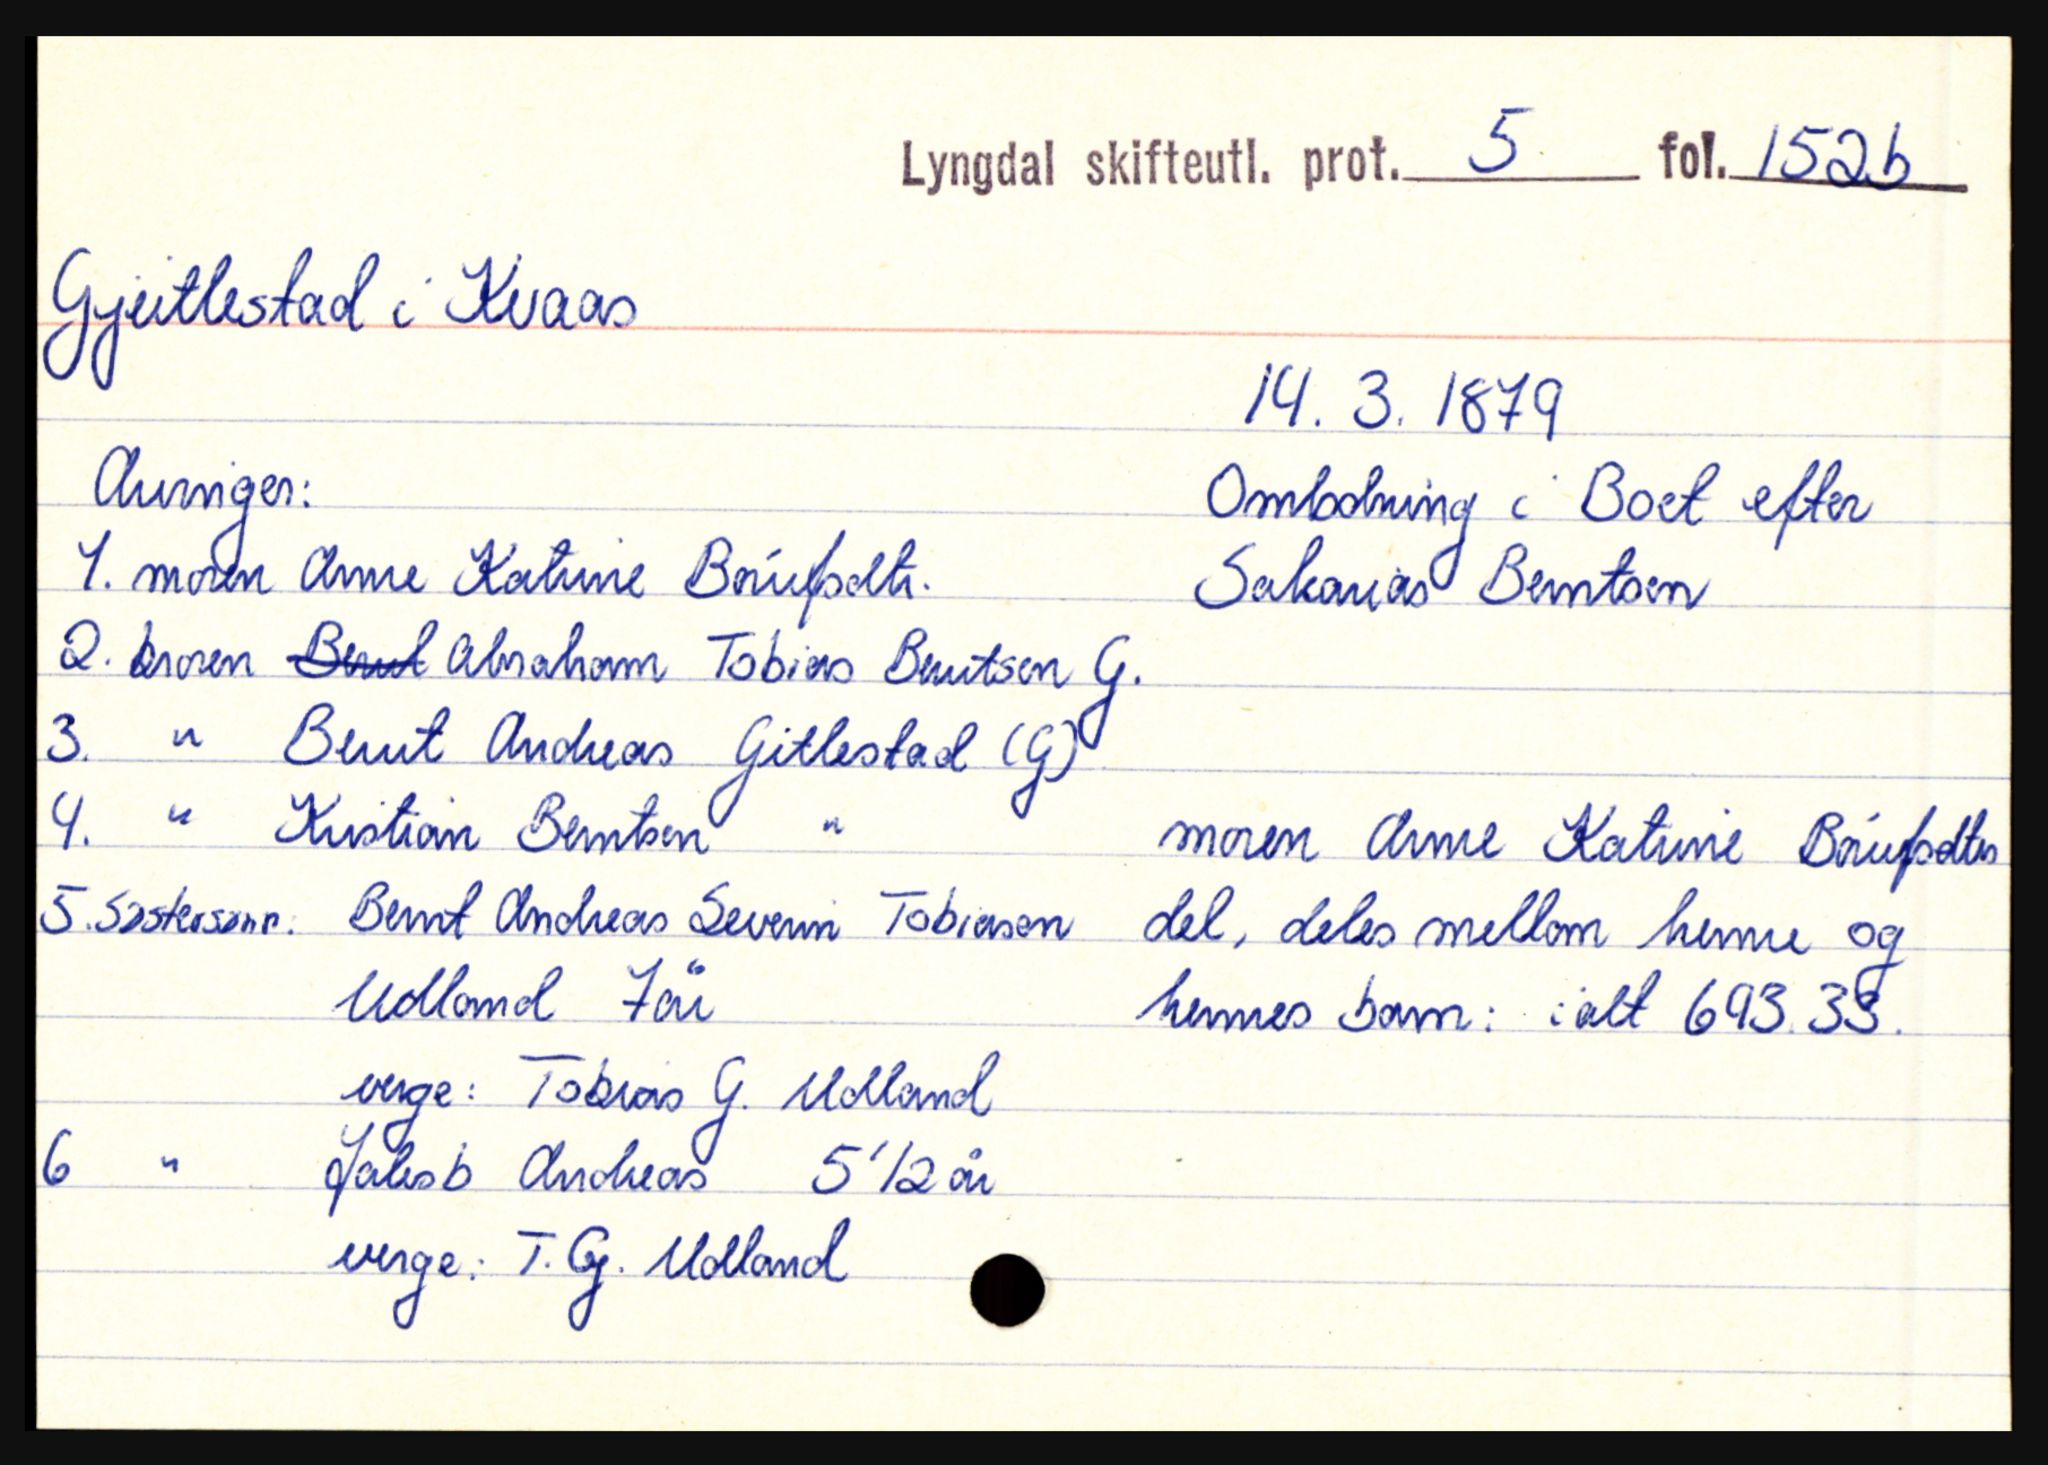 Lyngdal skifteutl. prot. 5 fol. 152b
Gjeitlestad i Kvaas
14. 3. 1879
Omlodning i Boet efter
Sakarias Berntsen
Arvinger:
1. moren Anne Katrine Börufsdtr.
2. broren Bernt Abraham Tobias Berntsen G.
3. " Bernt Andreas Gitlestad (G)
4. " Kristian Berntsen "
5. Søstersønn: Bernt Andreas Severin Tobiasen
Udland 7 år
verge: Tobias G. Udland
6 " Jakob Andreas 5 1/2 år
verge: T. G. Udland
moren Anne Katrine Börufsdtrs
del, deles mellom henne og
hennes barn: i alt 693.33.